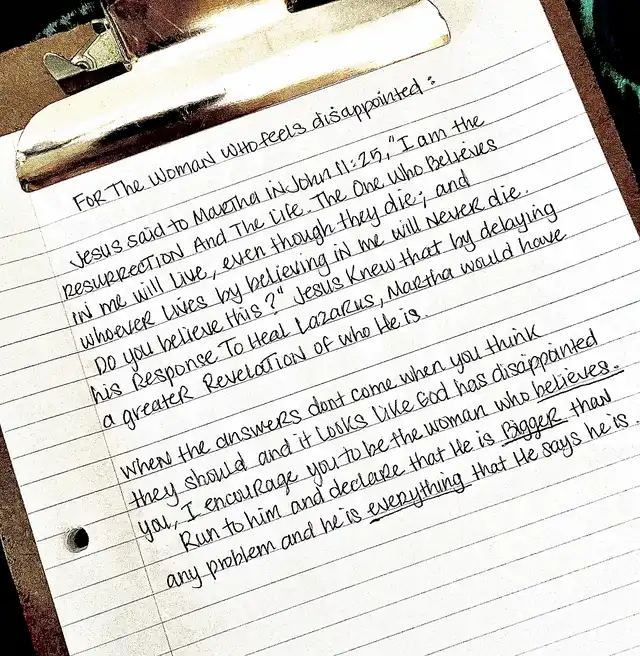 For The Woman Who feels disappointed:
Jesus said to Martha in John 11:25, "I am the
Resurrection And The Life. The One Who Believes
in me will live, even though they die; and
whoever lives by believing in me will Never die.
Do you believe this?" Jesus Knew that by delaying
his Response To Heal Lazarus, Martha would have
a greater Revelation of who He is.
When the answers dont come when you think
they should and it looks like God has disappointed
you, I encourage you to be the woman who believes.
Run to him and declare that He is Bigger than
any problem and he is everything that He says he is.